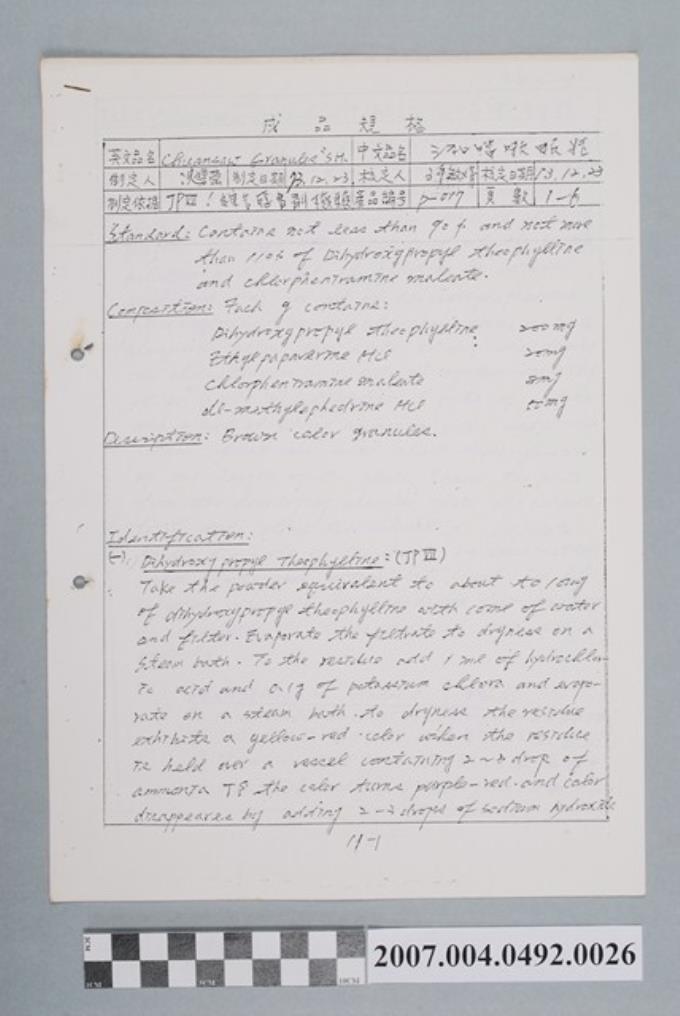 成品規格
英文品名 Chuansau Granules "S.H." 中文品名
制定人 制定日期 73.12.23 核定人 核定日期 73.12.23
制定依據 JP Ⅷ 產品編號 P-017 頁數 1-6
Standard: Contains not less than 90% and not more
than 110% of Dihydroxypropyl theophylline
and chlorpheniramine maleate.
Composition: Each g contains:
Dihydroxypropyl theophylline 200mg
Ethylpapaverine HCl 20mg
Chlorpheniramine maleate 8mg
dl-methylephedrine HCl 50mg
Description: Brown color granules.
Identification:
(一) Dihydroxy propyl Theophylline: (JP Ⅷ)
Take the powder equivalent to about to 10mg
of dihydroxypropyl theophylline with 10ml of water
and filter. Evaporate the filtrate to dryness on a
steam bath. To the residue add 1 ml of hydrochlor-
ic acid and 0.1g of potassium chlora and evapo-
rate on a steam bath to dryness the residue
exhibits a yellow-red color when the residue
is held over a vessel containing 2~3 drop of
ammonia TS the color turns purple-red and color
disappeares by adding 2-3 drops of sodium hydroxide
11-1
2007.004.0492.0026